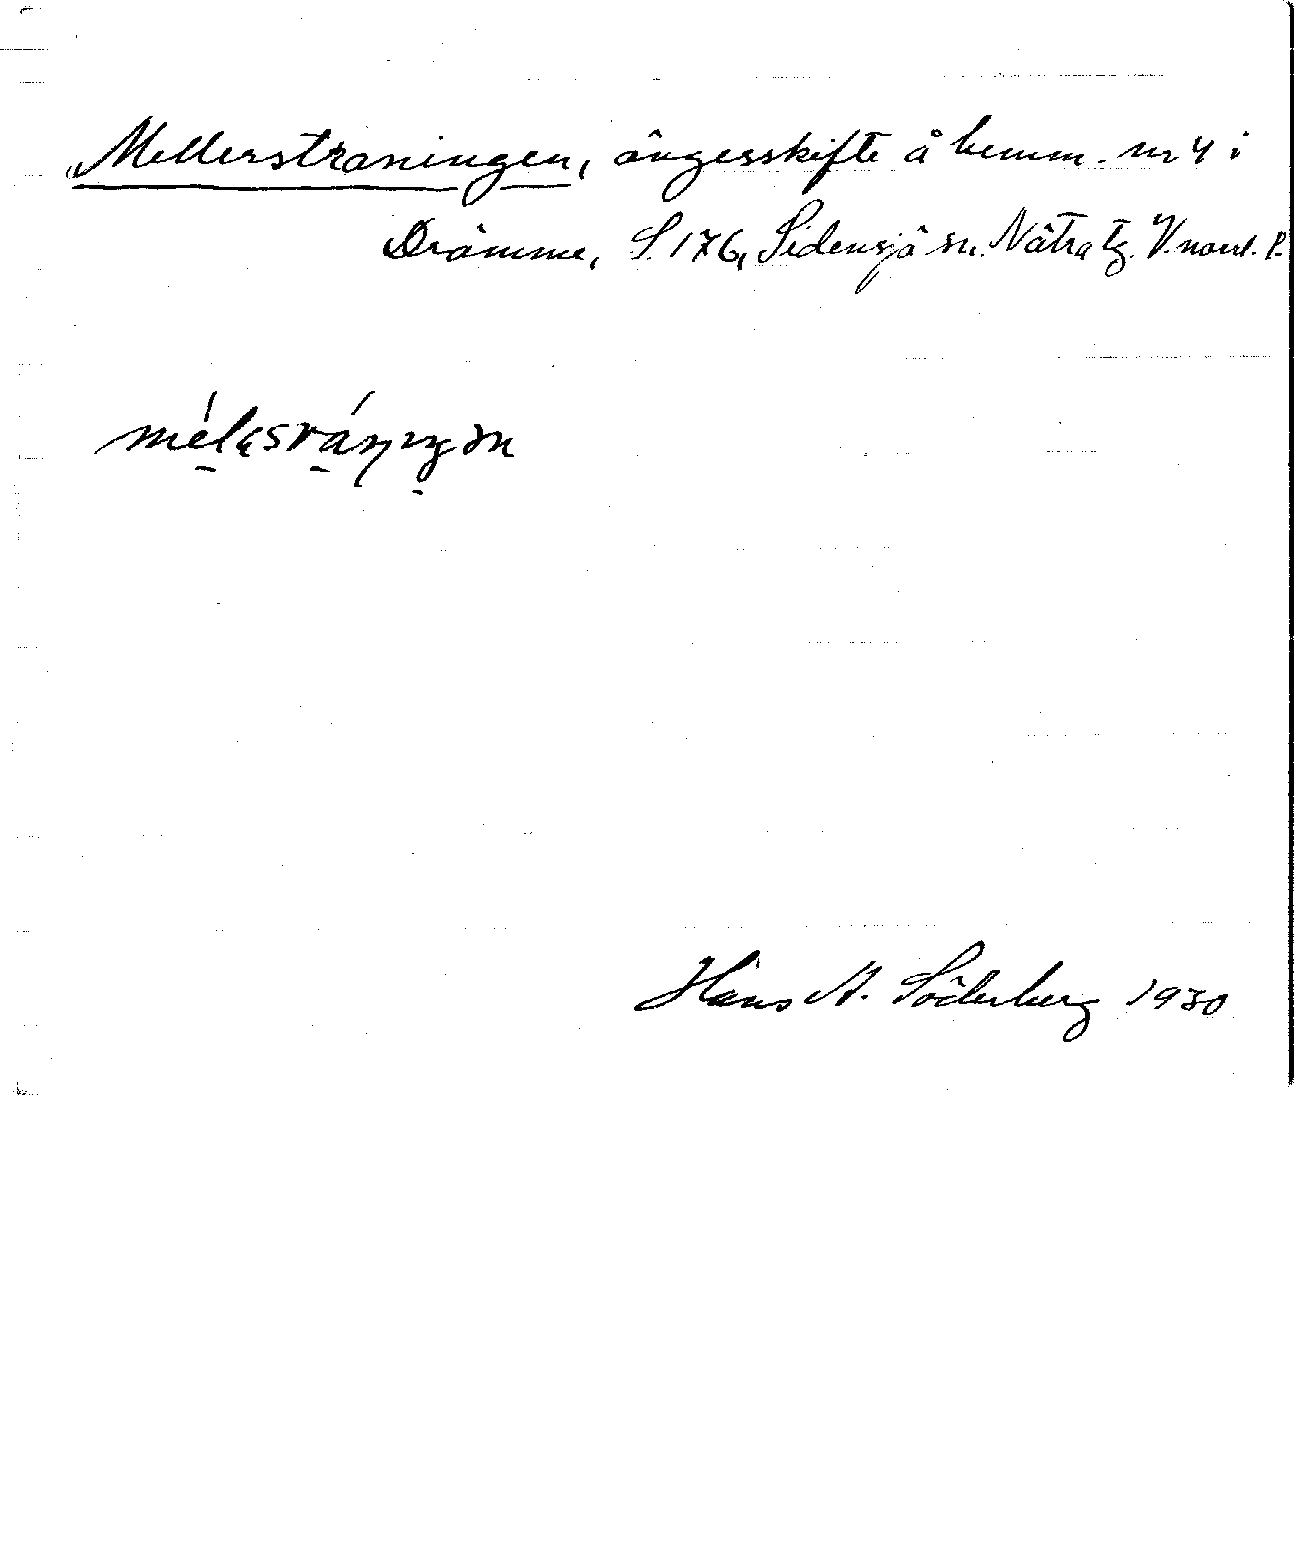 Mellerstraningen, ängesskifte å hemm. nr 4 i
Drömme, S. 176, Sidensjö sn. Nätra tg. V. norrl. l.
Hans A. Söderberg 1930